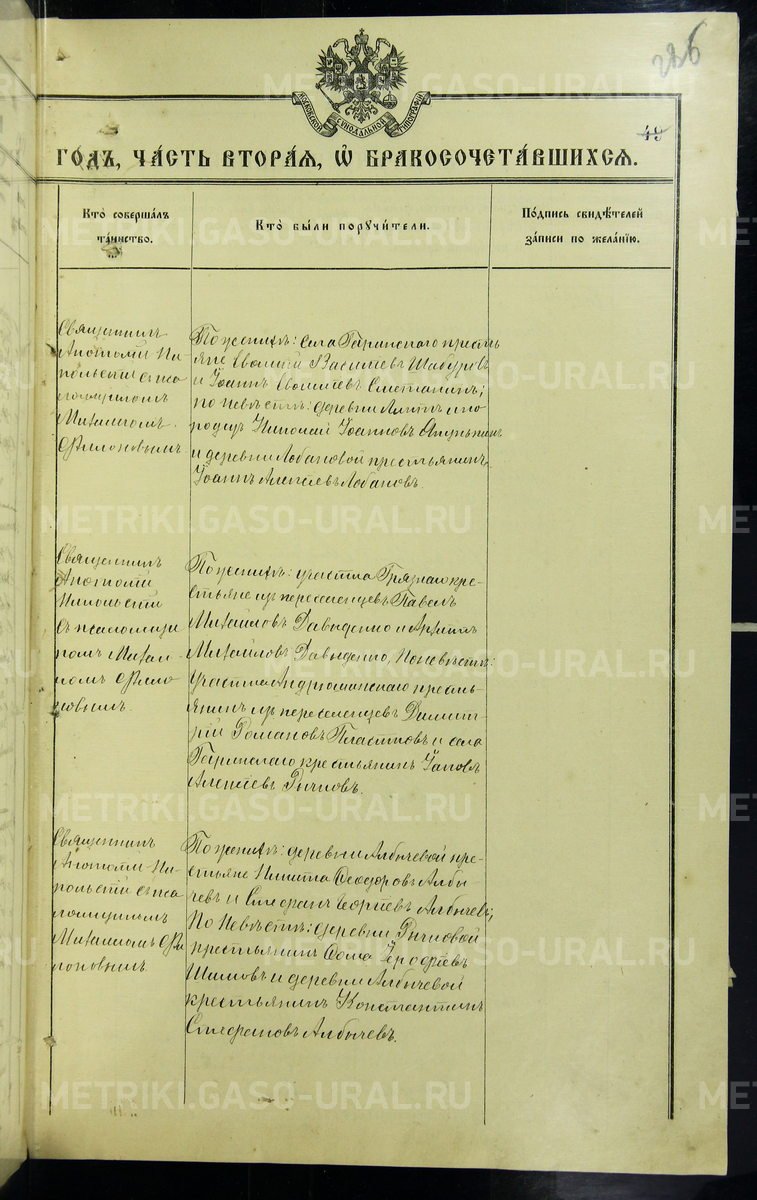 226
49
МОСКОВСКОЙ СѴНОДАЛЬНОЙ ТИПОГРАФІИ
ГО́ДЪ, ЧА́СТЬ ВТОРА́Я, Ѡ҆ БРАКОСОЧЕТА́ВШИХСЯ.
Кто̀ соверша́лъ
та́инство.
Кто̀ бы́ли порꙋчи́тели.
По́дпись свидѣ́телей
за́писи по жела́нїю.
Священникъ
Анатолій Ни-
кольскій съ пса-
ломщикомъ
Михаиломъ
Филоновымъ
По женихѣ: села Гаринскаго кресть
яне Евѳимій Васильевъ Шабуровъ
и Іоаннъ Евѳиміевъ Сметанинъ;
по невѣстѣ: деревни ино
родецъ Николай Іоанновъ
и деревни Лобановой крестьянинъ
Іоаннъ Алексѣевъ Лобановъ.
Священникъ
Анатолій
Никольскій
съ псаломщи
комъ Михаи-
ломъ Фило
новымъ.
По женихѣ: участка Грязнаго кре-
стьяне изъ переселенцевъ Павелъ
Михайловъ Давыденко и Архипъ
Михайловъ Давыденко, По невѣстѣ:
участка Андрюшинскаго кресть-
янинъ изъ переселенцевъ Димит-
рій Романовъ Пластковъ и села
Гаринскаго крестьянинъ Іаковъ
Алексѣевъ Рычковъ.
Священникъ
Анатолій Ни-
кольскій съ пса
ломщикомъ
Михаиломъ Фи
лоновымъ.
По женихѣ: деревни Албычевой кре-
стьяне Никита Ѳеодоровъ Албы-
чевъ и Стефанъ Георгіевъ Албычевъ;
По Невѣстѣ: деревни Рычковой
крестьянинъ Ѳома Іерофѣевъ
Шишовъ и деревни Албычевой
крестьянинъ Константинъ
Стефановъ Албычевъ.
METRIKI.GASO-URAL.RU